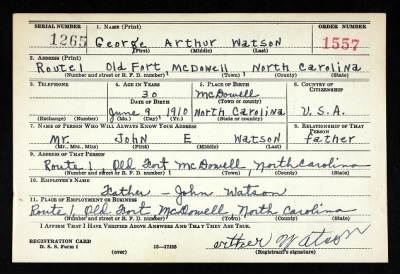 SERIAL NUMBER 1. NAME (Print) ORDER NUMBER
1265 George Arthur Watson 1557
(First) (Middle) (Last)
2. ADDRESS (Print)
Route 1 Old Fort McDowell North Carolina
(Number and street or R. F. D. number) (Town) (County) (State)
3. TELEPHONE 4. AGE IN YEARS 5. PLACE OF BIRTH 6. COUNTRY OF CITIZENSHIP
30 McDowell
DATE OF BIRTH (Town or county)
June 9 1910 North Carolina U.S.A.
(Exchange) (Number) (Mo.) (Day) (Yr.) (State or country)
7. NAME OF PERSON WHO WILL ALWAYS KNOW YOUR ADDRESS 8. RELATIONSHIP OF THAT PERSON
Mr. John E Watson father
(Mr., Mrs., Miss) (First) (Middle) (Last)
9. ADDRESS OF THAT PERSON
Route 1 Old Fort McDowell North Carolina
(Number and street or R. F. D. number) (Town) (County) (State)
10. EMPLOYER'S NAME
Father - John Watson
11. PLACE OF EMPLOYMENT OR BUSINESS
Route 1 Old Fort McDowell North Carolina
(Number and street or R. F. D. number) (Town) (County) (State)
I AFFIRM THAT I HAVE VERIFIED ABOVE ANSWERS AND THAT THEY ARE TRUE.
REGISTRATION CARD
D. S. S. Form 1 (over) Watson
(Registrant's signature)